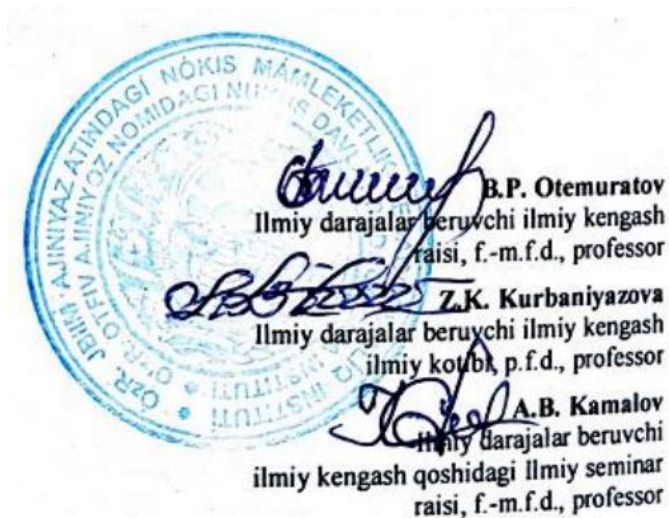 ÓZR. JBHIM ÁJINIYAZ ATINDAǴÍ NÓKIS MÁMLEKETLIK
INSTITUTÍ
O'ZR. OTFIV AJINIYOZ NOMIDAGI NUKUS DAVL
INSTITUTI
B.P. Otemuratov
Ilmiy darajalar beruvchi ilmiy kengash
raisi, f.-m.f.d., professor
Z.K. Kurbaniyazova
Ilmiy darajalar beruvchi ilmiy kengash
ilmiy kotibi, p.f.d., professor
A.B. Kamalov
Ilmiy darajalar beruvchi
ilmiy kengash qoshidagi Ilmiy seminar
raisi, f.-m.f.d., professor